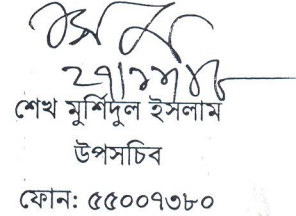 শেখ মুর্শিদুল ইসলাম
উপসচিব
ফোন: ৫৫০০৭৩৮০